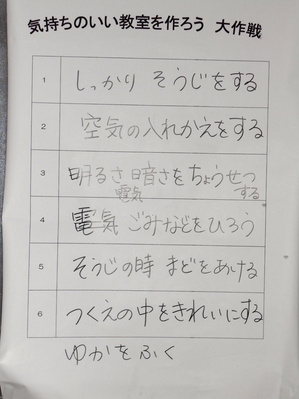 気持ちのいい教室を作ろう 大作戦
1 しっかり そうじをする
2 空気の入れかえをする
3 明るさ 暗さをちょうせつ
電気 する
4 電気 ごみなどをひろう
5 そうじの時 まどをあける
6 つくえの中をきれいにする
ゆかをふく